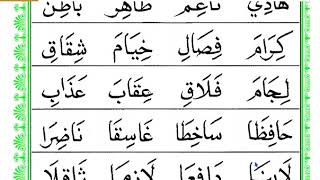 هَادِي نَاعِم طَاهِر بَاطِن
كِرَامَ فِصَالِ خِيَامَ شِقَاقِ
لِجَامَ فَلَاقِ عِقَابَ عَذَابِ
حَافِظًا سَاخِطَا غَاسِقَا نَاضِرَا
دَافِعَا لَازِمَا